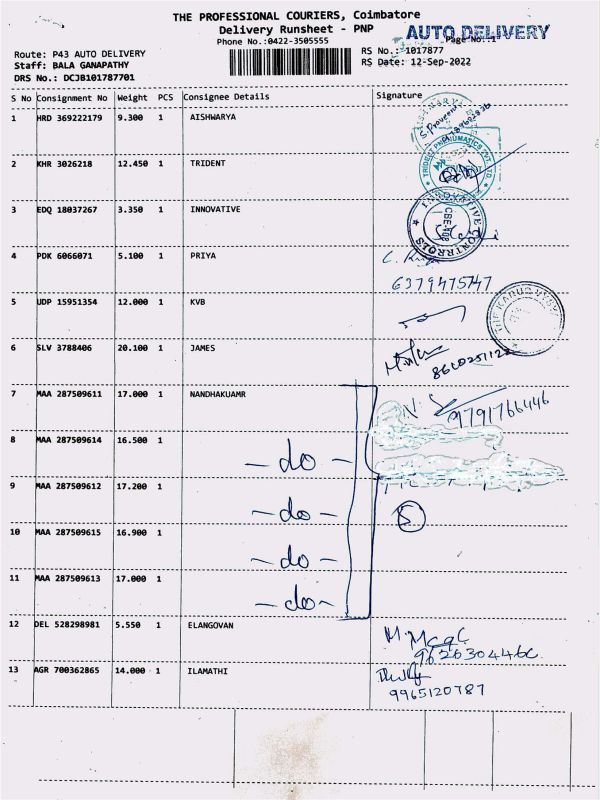 THE PROFESSIONAL COURIERS, Coimbatore
Delivery Runsheet - PNP
AUTO DELIVERY
Phone No.:0422-3505555
Page No.:1
Route: P43 AUTO DELIVERY
RS No.: 1017877
Staff: BALA GANAPATHY
RS Date: 12-Sep-2022
DRS No.: DCJB101787701
S No Consignment No Weight PCS Consignee Details Signature
1 HRD 369222179 9.300 1 AISHWARYA
S. Praveen
2 KHR 3026218 12.450 1 TRIDENT
TRIDENT PNEUMATICS PVT. LTD
3 EDQ 18037267 3.350 1 INNOVATIVE
INNOVATIVE CONTROLS
4 PDK 6066071 5.100 1 PRIYA
6379475747
5 UDP 15951354 12.000 1 KVB
THE KARUR VYSYA
6 SLV 3788406 20.100 1 JAMES
7 MAA 287509611 17.000 1 NANDHAKUAMR
9791766446
8 MAA 287509614 16.500 1
- do -
9 MAA 287509612 17.200 1
- do -
5
10 MAA 287509615 16.900 1
- do -
11 MAA 287509613 17.000 1
- do -
12 DEL 528298981 5.550 1 ELANGOVAN
13 AGR 700362865 14.000 1 ILAMATHI
9965120787